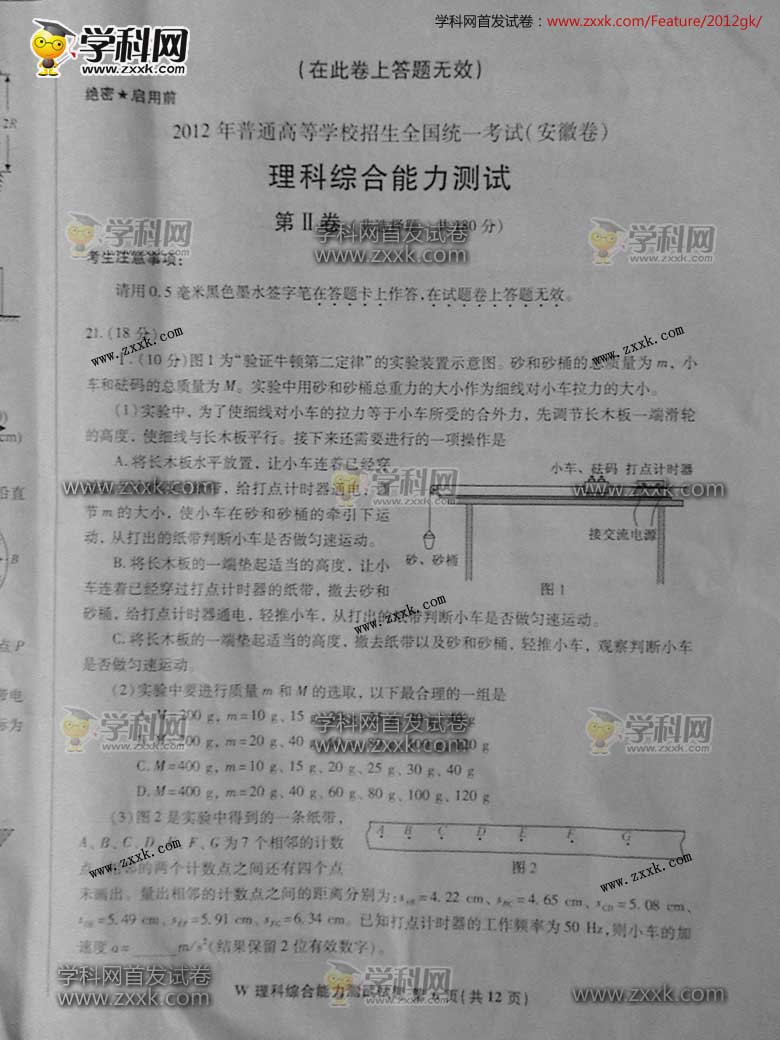 学科网首发试卷：www.zxxk.com/Feature/2012gk/
学科网
www.zxxk.com
(在此卷上答题无效)
绝密★启用前
2012年普通高等学校招生全国统一考试(安徽卷)
理科综合能力测试
第Ⅱ卷
学科网首发试卷
www.zxxk.com
学科网
zxxk.com
学科网
zxxk.com
考生注意事项:
请用0.5毫米黑色墨水签字笔在答题卡上作答,在试题卷上答题无效。
21.(18分)
www.zxxk.com
www.zxxk.com
Ⅰ.(10分)图1为“验证牛顿第二定律”的实验装置示意图。砂和砂桶的总质量为m,小
车和砝码的总质量为M。实验中用砂和砂桶总重力的大小作为细线对小车拉力的大小。
(1)实验中,为了使细线对小车的拉力等于小车所受的合外力,先调节长木板一端滑轮
的高度,使细线与长木板平行。接下来还需要进行的一项操作是
A.将长木板水平放置,让小车连着已经穿
带,给打点计时器通电,
节m的大小,使小车在砂和砂桶的牵引下运
动,从打出的纸带判断小车是否做匀速运动。
B.将长木板的一端垫起适当的高度,让小
车连着已经穿过打点计时器的纸带,撤去砂和
砂桶,给打点计时器通电,轻推小车,从打出的纸带判断小车是否做匀速运动。
C.将长木板的一端垫起适当的高度,撤去纸带以及砂和砂桶,轻推小车,观察判断小车
是否做匀速运动。
小车、砝码 打点计时器
接交流电源
砂、砂桶
图1
学科网首发试卷
www.zxxk.com
学科网
zxxk.com
学科网首发试卷
www.zxxk.com
www.zxxk.com
(2)实验中要进行质量m和M的选取,以下最合理的一组是
A.M=200 g,m=10 g、15 g
m=20 g、40
C.M=400 g,m=10 g、15 g、20 g、25 g、30 g、40 g
D.M=400 g,m=20 g、40 g、60 g、80 g、100 g、120 g
学科网
zxxk.com
学科网首发试卷
www.zxxk.com
学科网
zxxk.com
(3)图2是实验中得到的一条纸带,
A、B、C、D、 F、G为7个相邻的计数
相邻的两个计数点之间还有四个点
未画出。量出相邻的计数点之间的距离分别为:sAB=4.22 cm、sBC=4.65 cm、sCD=5.08 cm、
sDE=5.49 cm、sEF=5.91 cm、sFG=6.34 cm。已知打点计时器的工作频率为50 Hz,则小车的加
速度a=______m/s²(结果保留2位有效数字)。
A B C D E F G
图2
www.zxxk.com
www.zxxk.com
学科网首发试卷
www.zxxk.com
学科网
zxxk.com
学科网首发试卷
www.zxxk.com
W 理科综合能力测试试卷 页(共12页)
2R
cm)
沿直
B
点P